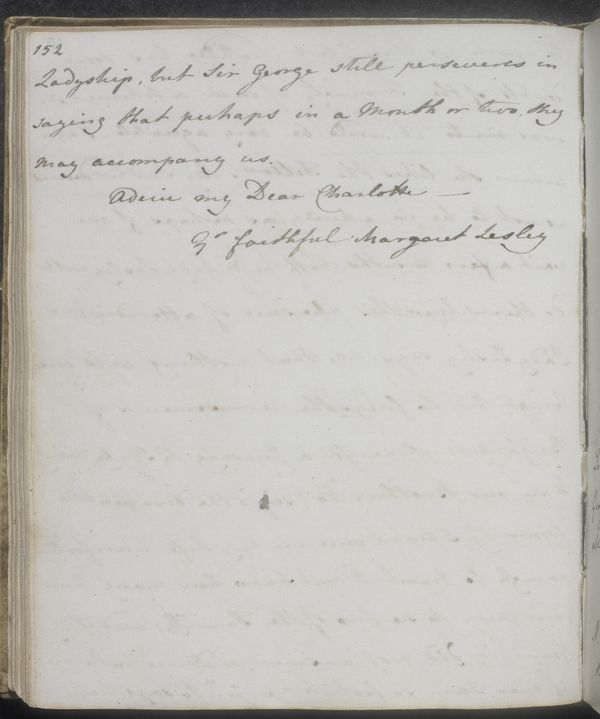 152
Ladyship, but Sir George still perseveres in
saying that perhaps in a Month or two, they
may accompany us.
Adeiu my Dear Charlotte —
Yr faithful Margaret Lesley